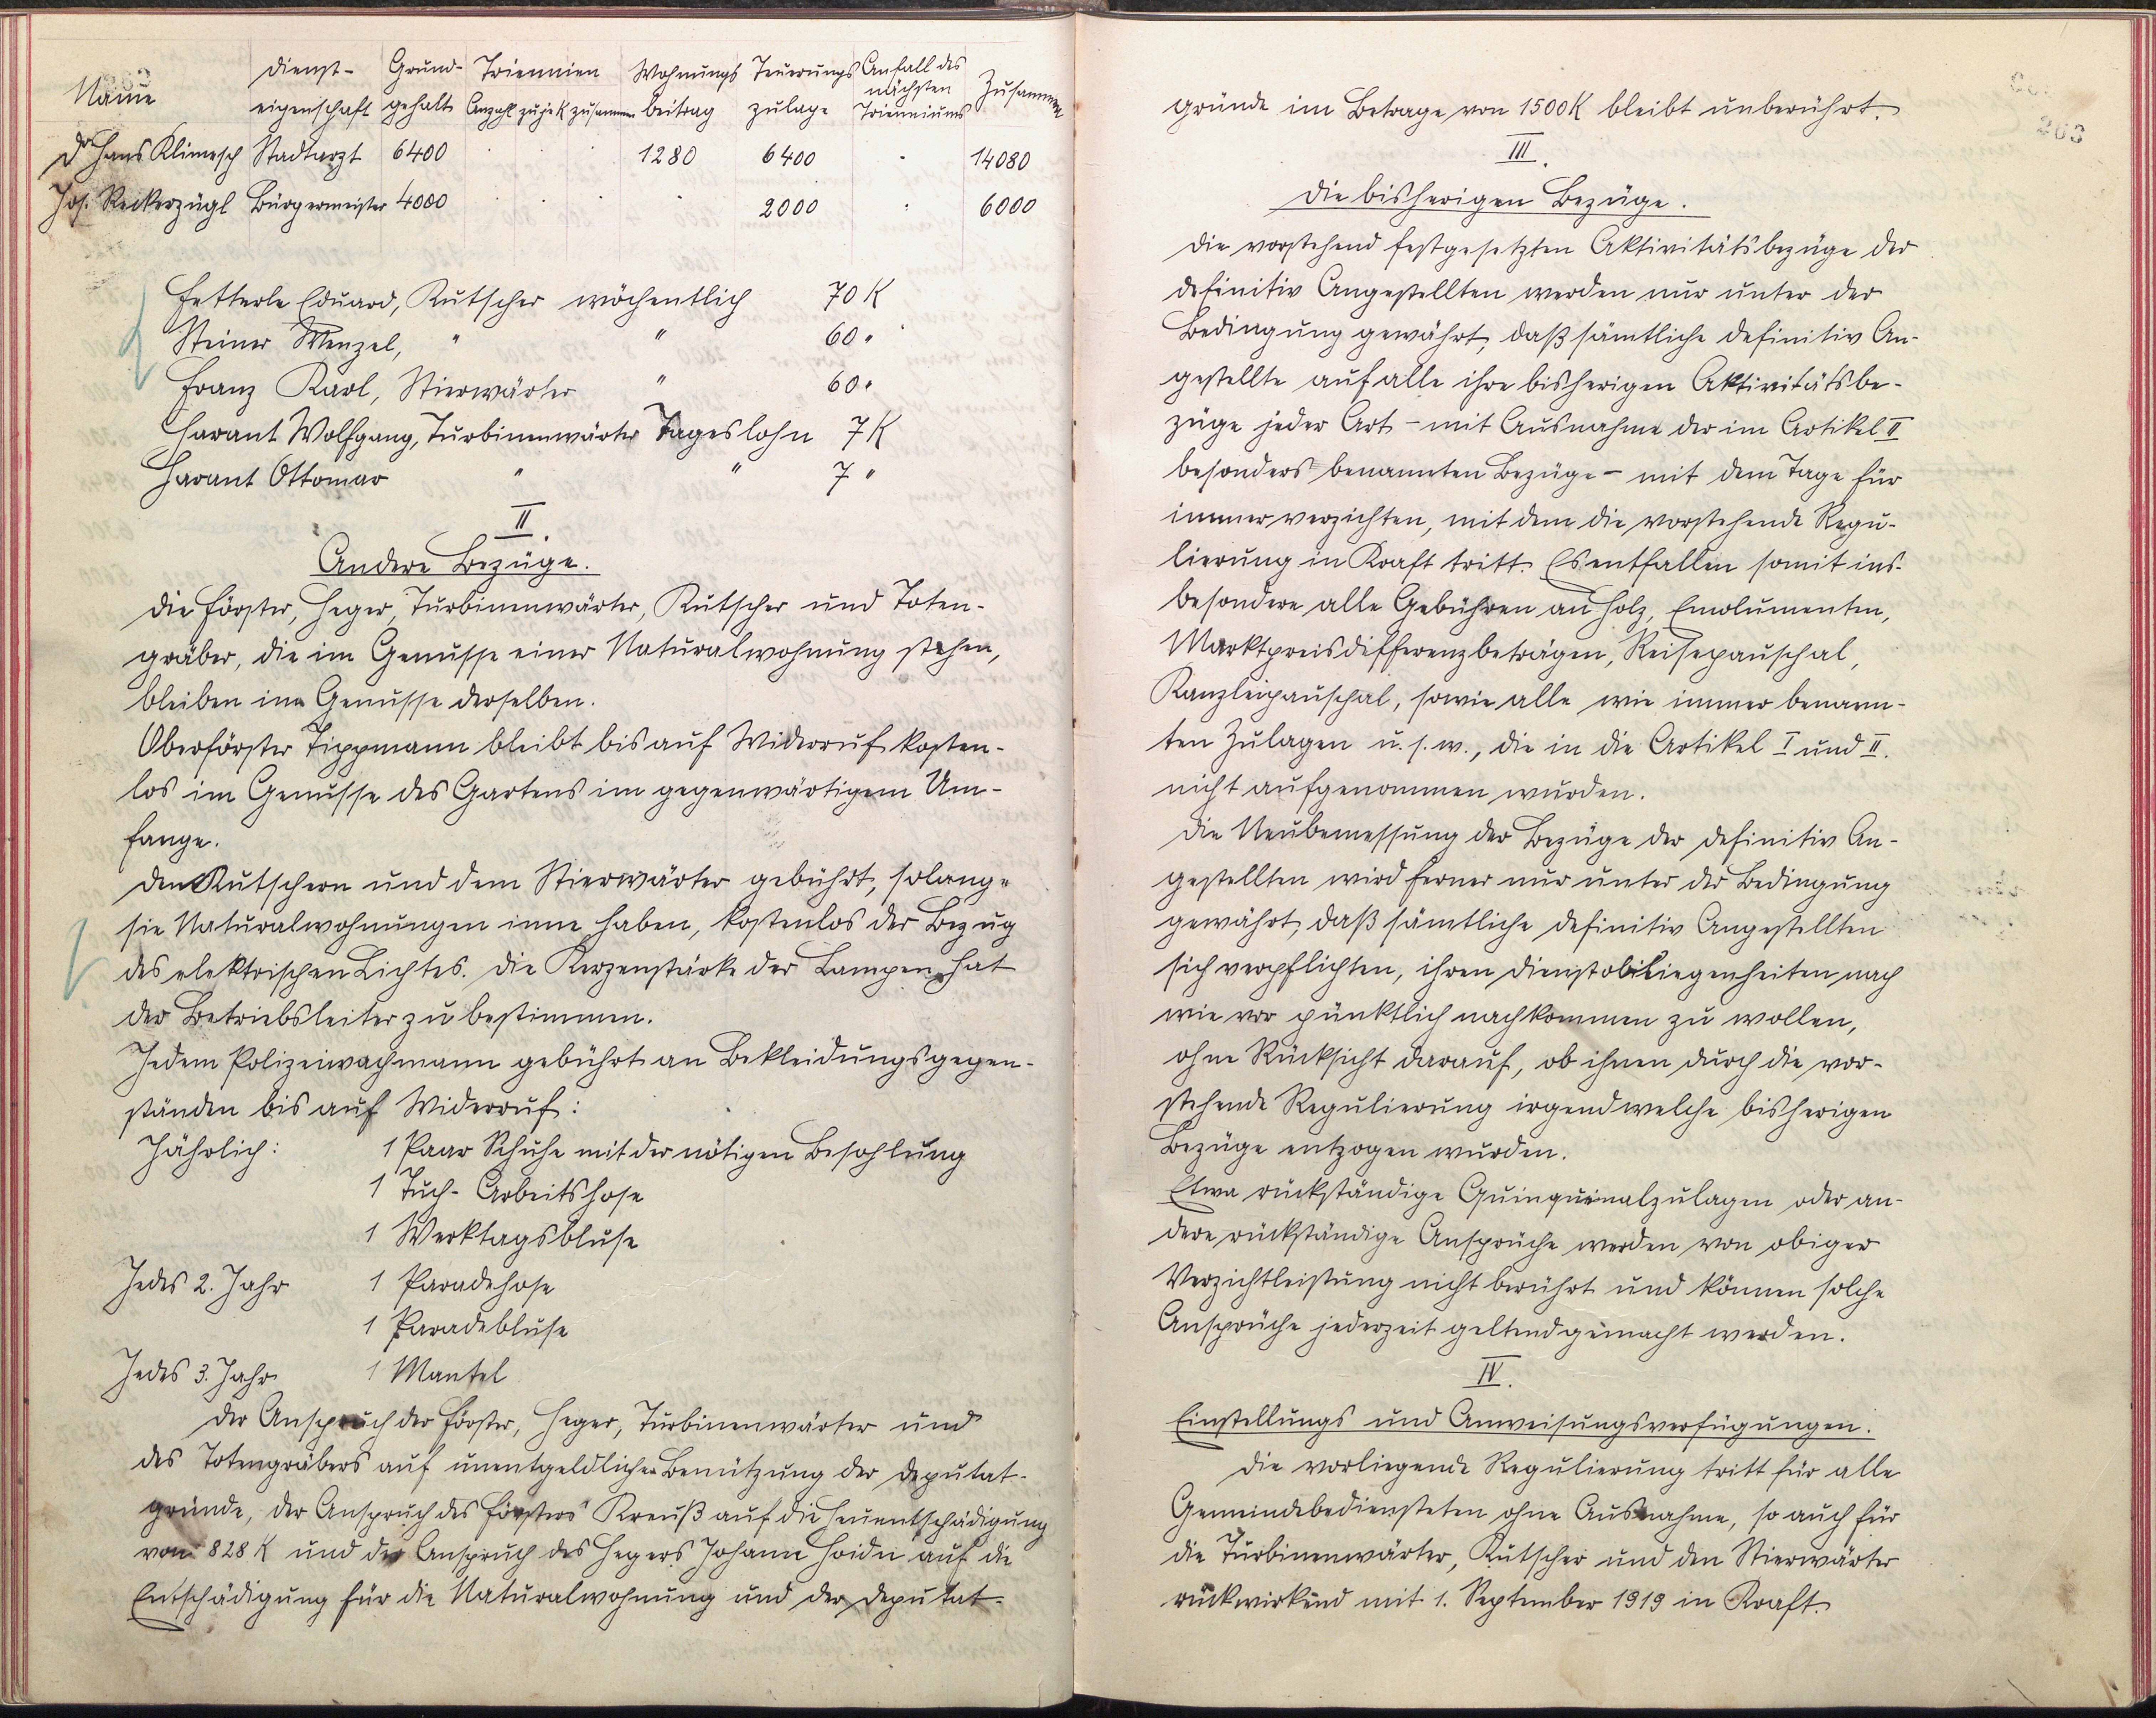 Name Dienst- Grund- Triennien Wohnungs Teuerungs Anfall des Zusammen
eigenschaft gehalt Anzahl zu je K zusammen beitrag zulage nächsten Trienniums
Dr Hans Klimesch Stadtarzt 6400 . . . 1280 6400 . 14080
Jos. Reckerzügl Bürgermeister 4000 . . . . 2000 . 6000
Fetterle Eduard, Kutscher wöchentlich 70 K
Steiner Wenzel, " " 60 "
Franz Karl, Stierwärter " 60 "
Harant Wolfgang, Turbinenwärter Tageslohn 7 K
Harant Ottomar " " 7 "
II.
Andere Bezüge.
Die Förster, Heger, Turbinenwärter, Kutscher und Toten-
gräber, die im Genusse einer Naturalwohnung stehen,
bleiben im Genusse derselben.
Oberförster Tippmann bleibt bis auf Widerruf kosten-
los im Genusse des Gartens im gegenwärtigem Um-
fange.
Den Kutschern und dem Stierwärter gebührt, solange
sie Naturalwohnungen inne haben, kostenlos der Bezug
des elektrischen Lichtes. Die Kerzenstärke der Lampen hat
der Betriebsleiter zu bestimmen.
Jedem Polizeiwachmann gebührt an Bekleidungsgegen-
ständen bis auf Widerruf:
Jährlich: 1 Paar Schuhe mit der nötigen Besohlung
1 Tuch- Arbeitshose
1 Werktagsbluse
Jedes 2. Jahr 1 Paradehose
1 Paradebluse
Jedes 3. Jahr 1 Mantel
Der Anspruch der Förster, Heger, Turbinenwärter und
des Totengräbers auf unentgeldlicher Benützung der Deputat-
gründe, der Anspruch des Försters Kreuß auf die Heuentschädigung
von 828 K und der Anspruch des Hegers Johann Hoidn auf die
Entschädigung für die Naturalwohnung und der Deputat-
263
gründe im Betrage von 1500 K bleibt unberührt.
III.
Die bisherigen Bezüge.
Die vorstehend festgesetzten Aktivitätsbezüge der
definitiv Angestellten werden nur unter der
Bedingung gewährt, daß sämtliche definitiv An-
gestellte auf alle ihre bisherigen Aktivitätsbe-
züge jeder Art - mit Ausnahme der im Artikel II
besonders benannten Bezüge - mit dem Tage für
immer verzichten, mit dem die vorstehende Regu-
lierung in Kraft tritt. Es entfallen somit ins-
besondere alle Gebühren an Holz, Emolumenten,
Marktpreisdifferenzbeträgen, Reisepauschal,
Kanzleipauschal, sowie alle wie immer benann-
ten Zulagen u.s.w., die in die Artikel I und II.
nicht aufgenommen wurden.
Die Neubemessung der Bezüge der definitiv An-
gestellten wird ferner nur unter der Bedingung
gewährt, daß sämtliche definitiv Angestellten
sich verpflichten, ihren Dienstobliegenheiten nach
wie vor pünktlich nachkommen zu wollen,
ohne Rücksicht darauf, ob ihnen durch die vor-
stehende Regulierung irgendwelche bisherigen
Bezüge entzogen wurden.
Etwa rückständige Quinquinalzulagen oder an-
dere rückständige Ansprüche werden von obiger
Verzichtleistung nicht berührt und können solche
Ansprüche jederzeit geltend gemacht werden.
IV.
Einstellungs und Anweisungsverfügungen.
Die vorliegende Regulierung tritt für alle
Gemeindebediensteten ohne Ausnahme, so auch für
die Turbinenwärter, Kutscher und den Stierwärter
rückwirkend mit 1. September 1919 in Kraft.